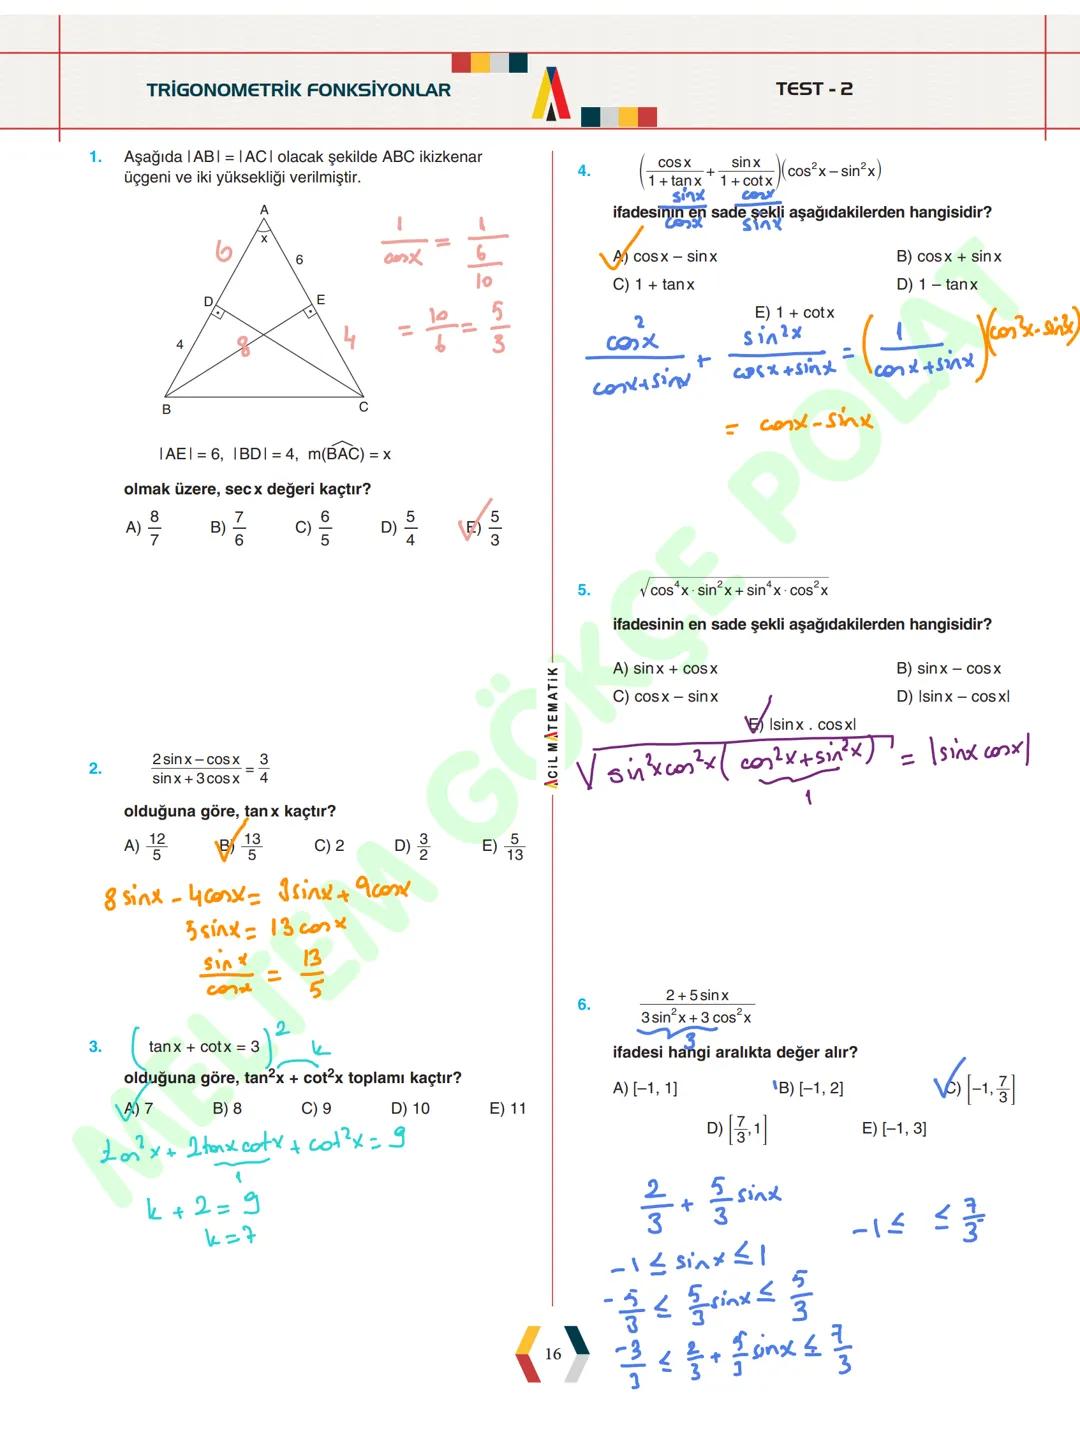 TRİGONOMETRİK FONKSİYONLAR
TEST - 2
1. Aşağıda |AB| = |AC| olacak şekilde ABC ikizkenar
üçgeni ve iki yüksekliği verilmiştir.
A
x
6
6
D
E
4
8
4
B
C
1/cosx = 1/(6/10)
= 10/6 = 5/3
|AE| = 6, |BD| = 4, m(BAC) = x
olmak üzere, sec x değeri kaçtır?
A) 8/7 B) 7/6 C) 6/5 D) 5/4 E) 5/3
2. (2 sin x – cos x)/(sin x + 3 cos x) = 3/4
olduğuna göre, tan x kaçtır?
A) 12/5 B) 13/5 C) 2 D) 3/2 E) 5/13
8 sinx - 4cosx = 3sinx + 9cosx
5sinx = 13 cosx
sinx/cosx = 13/5
3. (tan x + cot x = 3)²
k
olduğuna göre, tan²x + cot²x toplamı kaçtır?
A) 7 B) 8 C) 9 D) 10 E) 11
tan²x + 2tanxcotx + cot²x = 9
1
k + 2 = 9
k = 7
4. (cos x/(1 + tan x) + sin x/(1 + cot x))(cos²x – sin²x)
sinx/cosx cosx/sinx
ifadesinin en sade şekli aşağıdakilerden hangisidir?
A) cos x – sin x B) cos x + sin x
C) 1 + tan x D) 1 – tan x
E) 1 + cot x
cos²x/(cosx+sinx) + sin²x/(cosx+sinx) = (1/(cosx+sinx))(cos²x-sin²x)
= cosx - sinx
5. √(cos⁴x · sin²x + sin⁴x · cos²x)
ifadesinin en sade şekli aşağıdakilerden hangisidir?
A) sin x + cos x B) sin x – cos x
C) cos x – sin x D) |sin x – cos x|
E) |sin x . cos x|
√(sin²xcos²x(cos²x+sin²x)) = |sinx cosx|
1
6. (2 + 5 sin x)/(3 sin²x + 3 cos²x)
3
ifadesi hangi aralıkta değer alır?
A) [–1, 1] B) [–1, 2] C) [–1, 7/3]
D) [7/3, 1] E) [–1, 3]
2/3 + 5/3 sinx
-1 ≤ ≤ 7/3
-1 ≤ sinx ≤ 1
-5/3 ≤ 5/3 sinx ≤ 5/3
-3/3 ≤ 2/3 + 5/3 sinx ≤ 7/3
ACİL MATEMATİK
MELTEM GÖKÇE POLAT
16